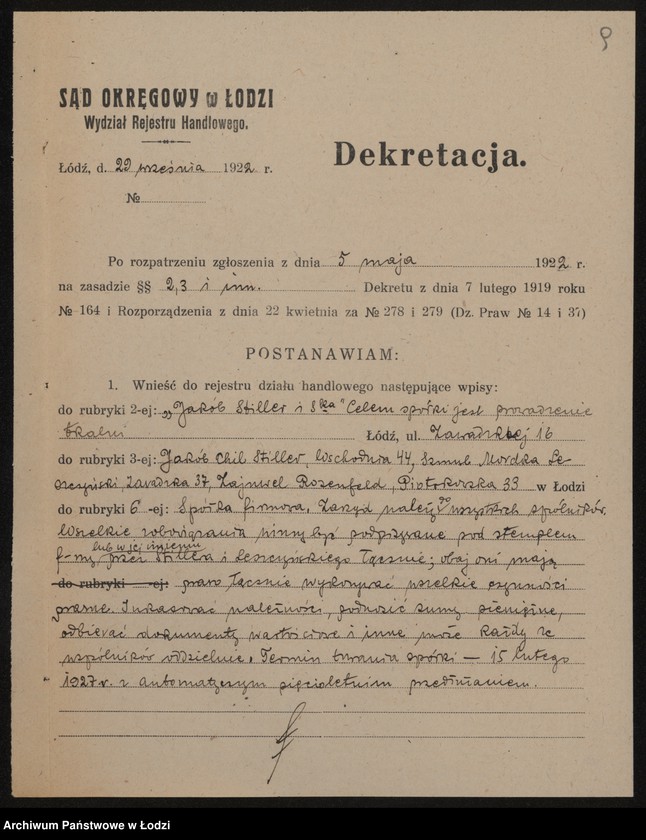 9
SĄD OKRĘGOWY w ŁODZI
Wydział Rejestru Handlowego.
Dekretacja.
Łódź, d. 29 września 1922 r.
№
Po rozpatrzeniu zgłoszenia z dnia 5 maja 1922 r.
na zasadzie §§ 2,3 i inn. Dekretu z dnia 7 lutego 1919 roku
№ 164 i Rozporządzenia z dnia 22 kwietnia za № 278 i 279 (Dz. Praw № 14 i 37)
POSTANAWIAM:
1. Wnieść do rejestru działu handlowego następujące wpisy:
do rubryki 2-ej: „Jakób Stiller i S-ka" Celem spółki jest prowadzenie
tkalni Łódź, ul. Zawadzkiej 16
do rubryki 3-ej: Jakób Chil Stiller, Wschodnia 44, Szmul Mordka Le-
szczyński, Zawadzka 37, Zajnwel Rozenfeld, Piotrkowska 33 w Łodzi
do rubryki 6-ej: Spółka firmowa. Zarząd należy do wszystkich spólników.
Wszelkie zobowiązania winny być podpisywane pod stemplem
lub w jej imieniu
f-my przez Stillera i Leszczyńskiego łącznie; obaj oni mają
do rubryki -ej: prawo łącznie wykonywać wszelkie czynności
prawne. Inkasować należności, podnosić sumy pieniężne,
odbierać dokumenty wartościowe i inne może każdy ze
wspólników oddzielnie. Termin trwania spółki — 15 lutego
1927 r. z automatycznym pięcioletnim przedłużaniem.
Archiwum Państwowe w Łodzi